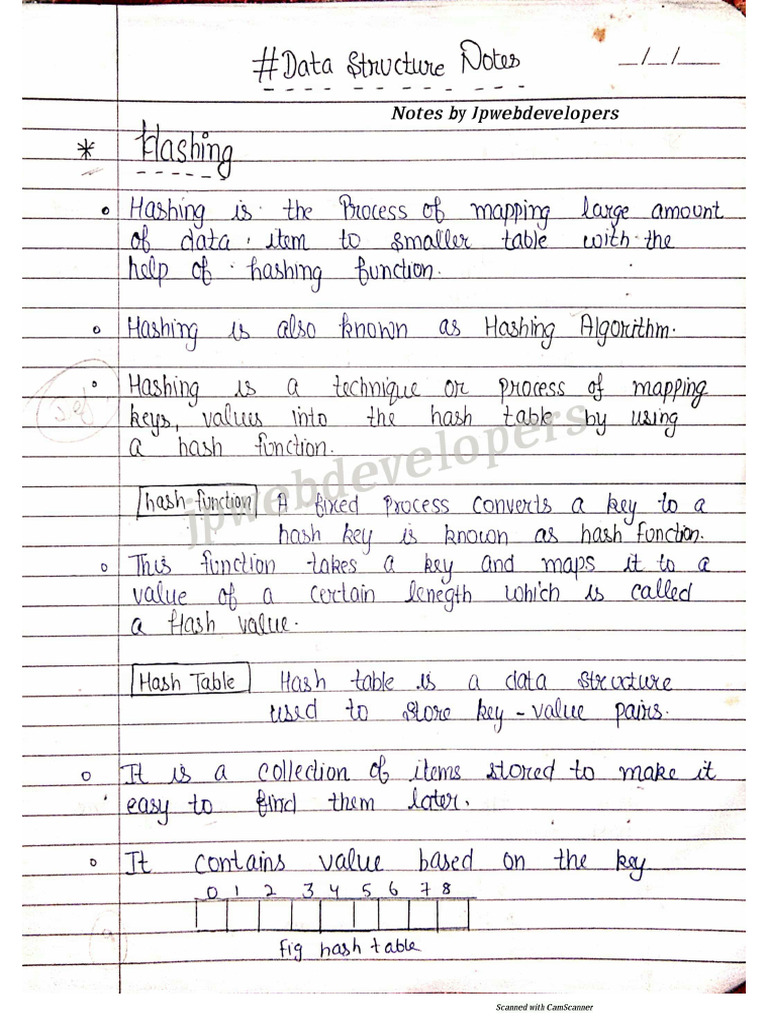 #Data Structure Notes
__/__/____
Notes by Jpwebdevelopers
* Hashing
Hashing is the Process of mapping large amount
of data item to smaller table with the
help of hashing function.
Hashing is also known as Hashing Algorithm.
Hashing is a technique or process of mapping
keys, values into the hash table by using
a hash function.
jpwebdevelopers
hash function A fixed process converts a key to a
hash key is known as hash function.
This function takes a key and maps it to a
value of a certain lenegth which is called
a Hash value.
Hash Table Hash table is a data structure
used to store key-value pairs.
It is a collection of items stored to make it
easy to find them later.
It contains value based on the key
0 1 2 3 4 5 6 7 8
Fig hash table
Scanned with CamScanner